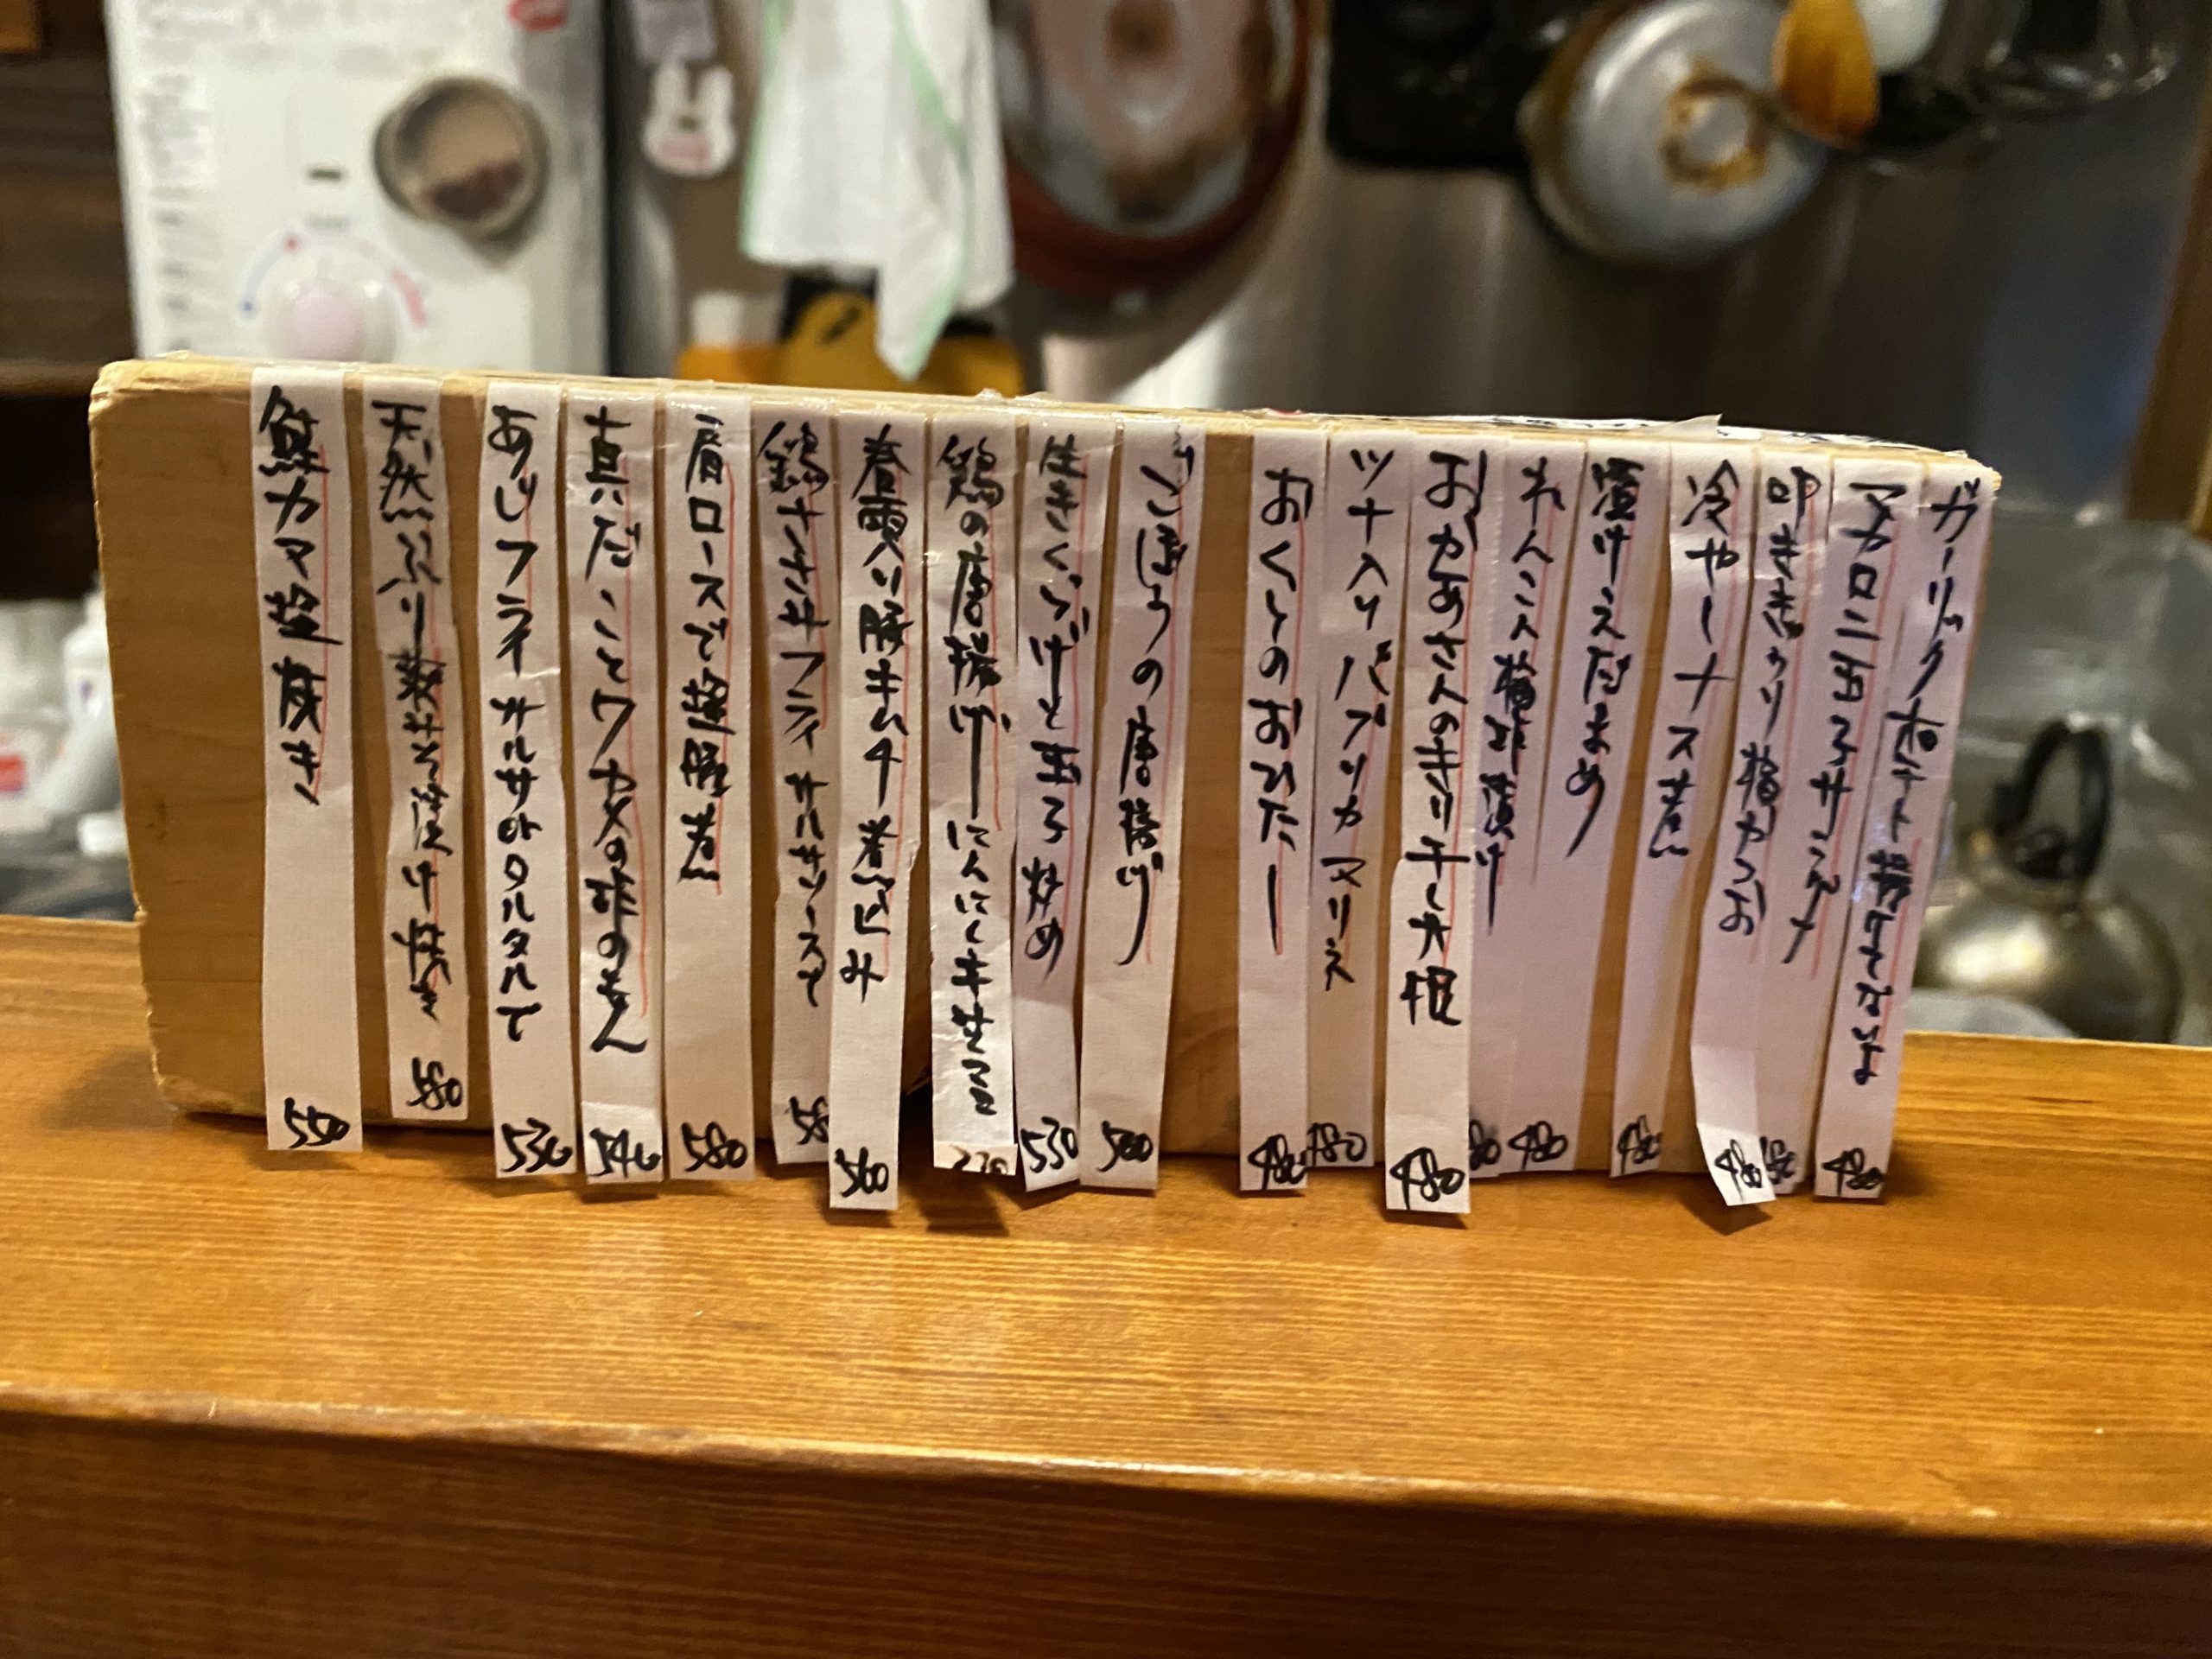 ガーリックポテト揚げてないよ
マカロニ玉子サラダ 480
叩ききゅうり梅かつお 480
冷やしナス煮 480
漬けえだまめ 480
れんこん梅酢漬け
おかめさんのきり干し大根 480
ツナ入りパプリカマリネ 480
おくらのおひたし 480
ごぼうの唐揚げ 500
生きくらげと玉子炒め 530
鶏の唐揚げ にんにくキ生マヨ
春雨入り豚キムチ煮込み 560
鶏ささみフライ サルサソースで
肩ロースで塩豚煮 580
真だことワカメの酢のもん 540
あじフライ サルサorタルタルで 530
天然ぶり 焼き 580
鮭カマ塩焼き 550